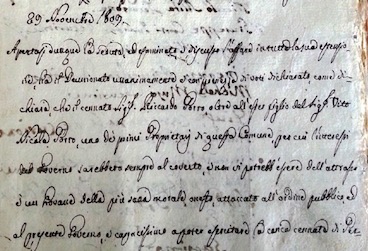 29 Novembre 1809.
Apertasi dunque la seduta, ed esaminato, e discusso l'affare in tutta la sua estenzio
ne, ha il Decurionato unanimamente di voti dichiarato, come di-
chiara, che il cennato Sig.r Riccardo Potto oltre all'esser figlio del Sig.r Vito
Nicola Potto, uno dei primi Proprietarj di questa Comune, per cui l'interessi
del Governo sarebbero sempre al coverto, e non si potrebb'essere dell'attrasso
è un Giovane della più sana morale, onesto, attaccato all'ordine pubblico, ed
al presente Governo, e capacissimo a poter esercitare la carica cennata di